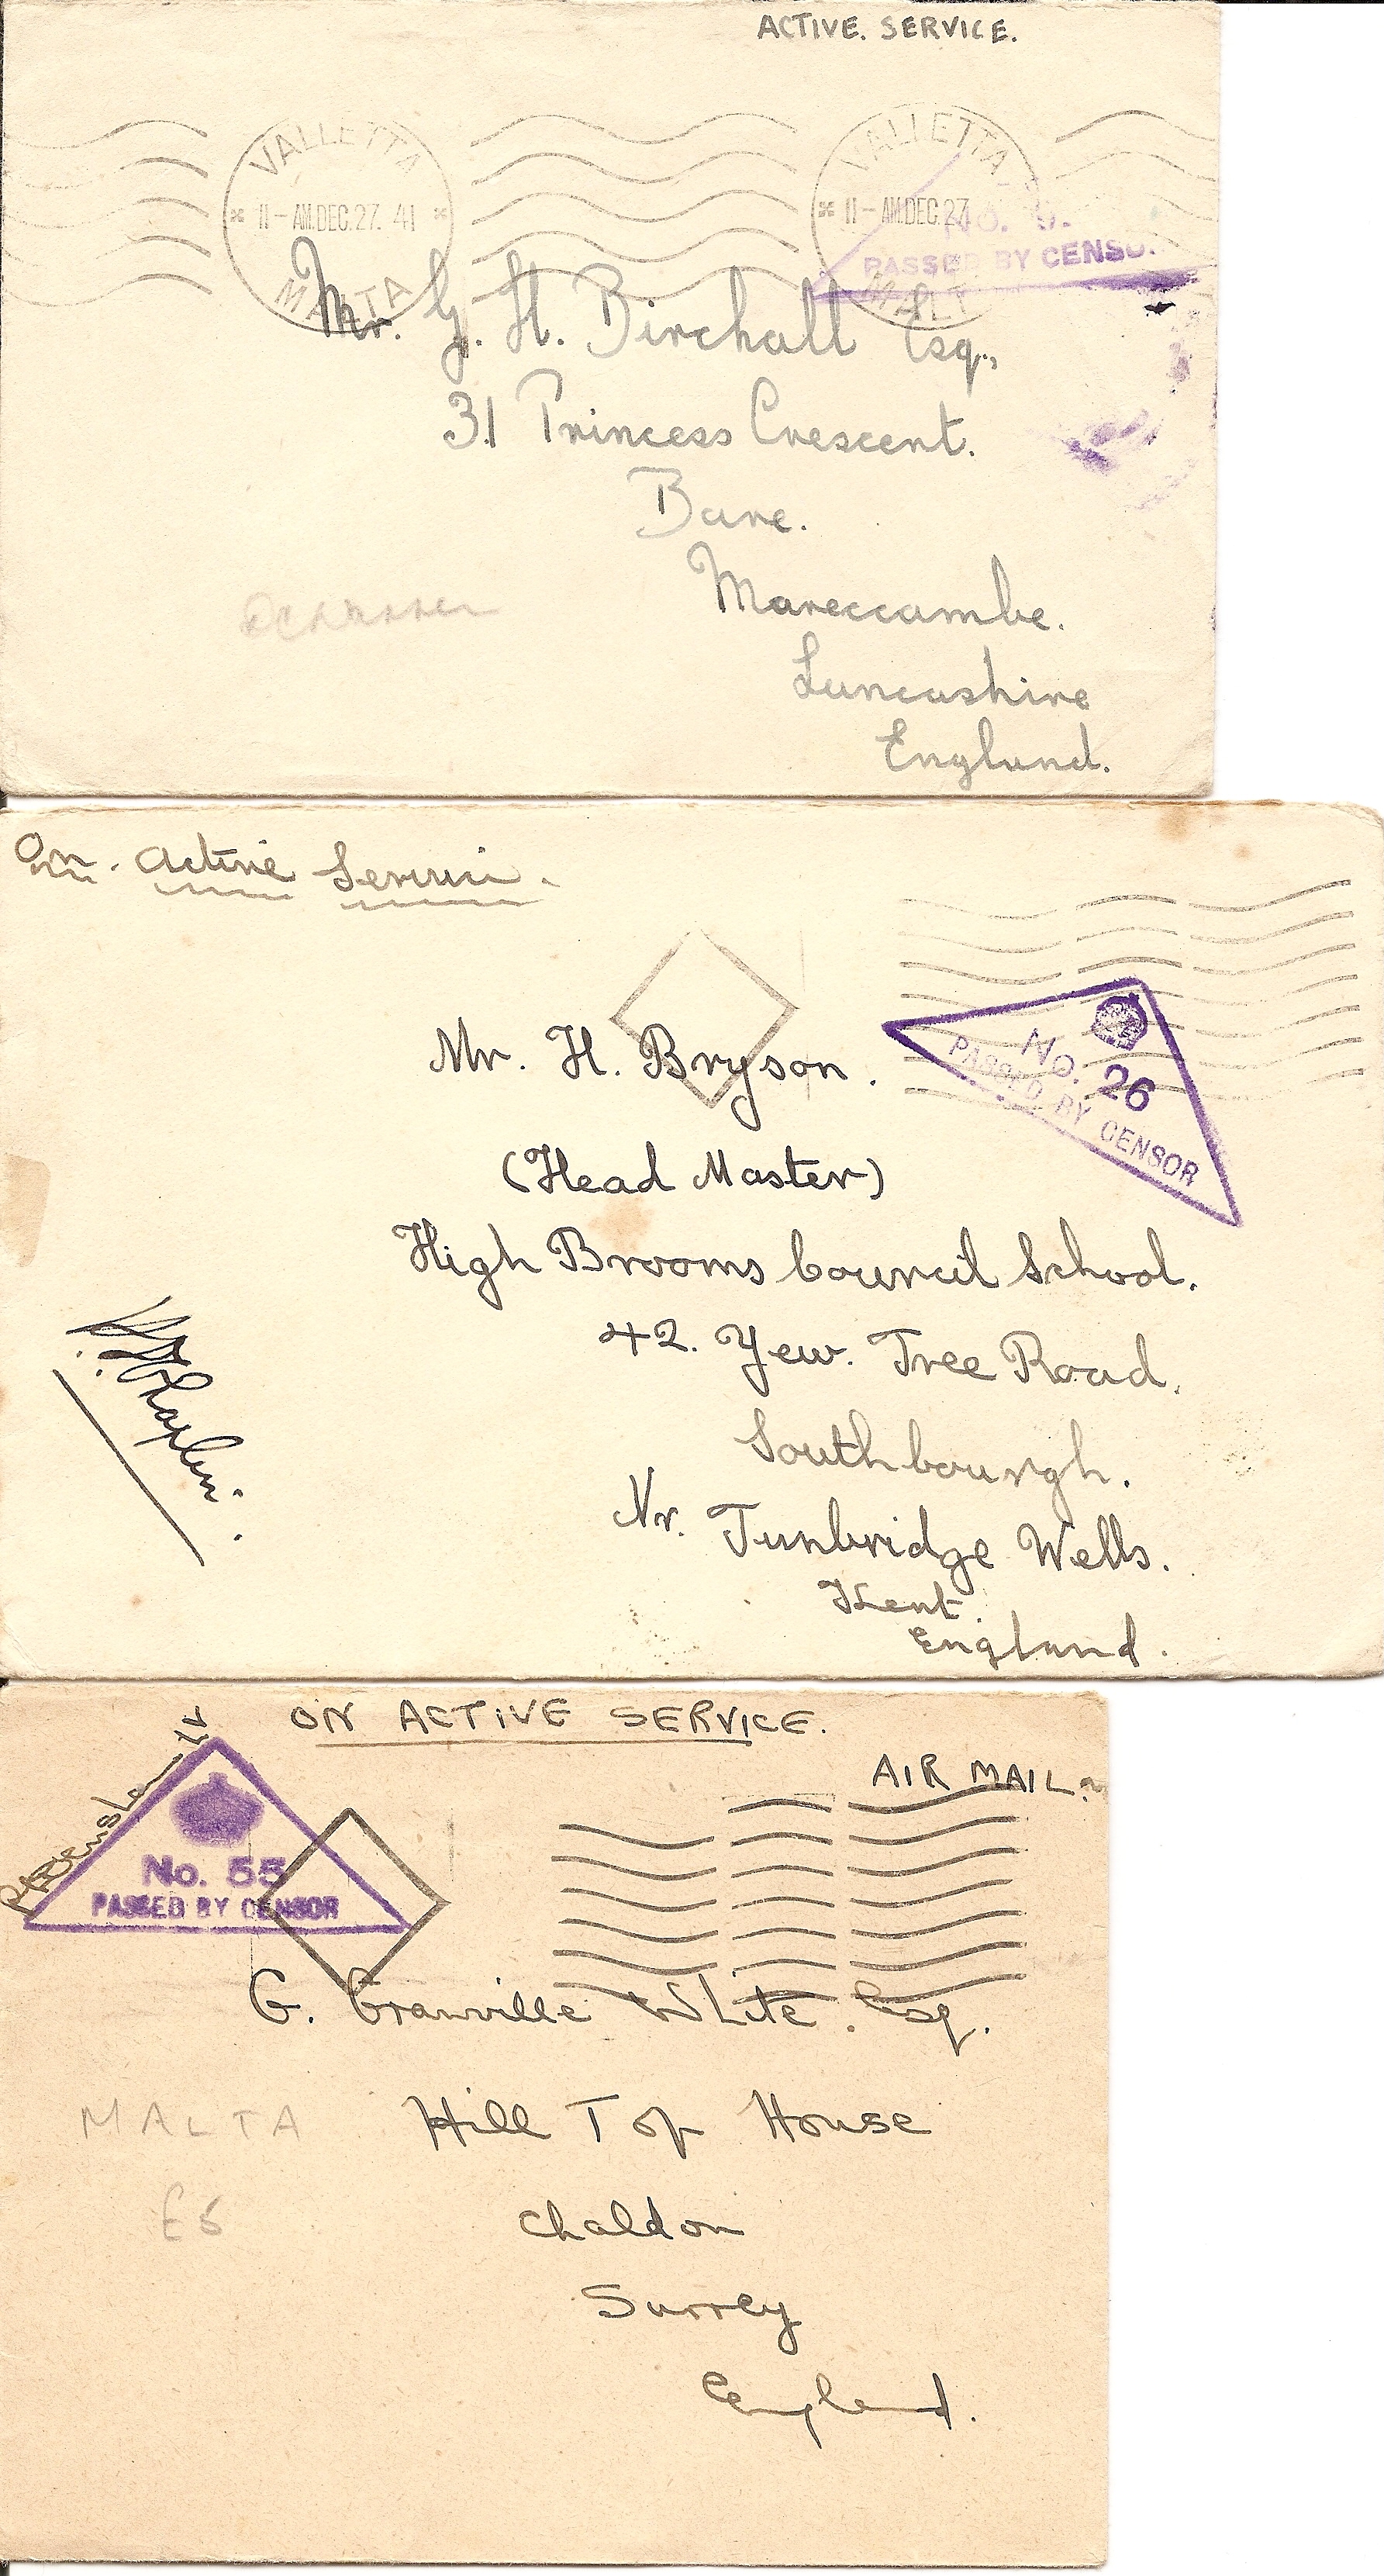 ACTIVE. SERVICE.
VALLETTA
11-AM.DEC.27. 41
MALTA
VALLETTA
11-AM.DEC.27
MALT
No.
PASSED BY CENSO
Mr. G. H. Birchall Esq.,
31 Princess Crescent.
Bare.
Moreccambe.
Lancashire
England.
On. Active Service.
No. 26
PASSED BY CENSOR
Mr. H. Bryson.
(Head Master)
High Brooms Council School.
42. Yew. Tree Road.
Southbourgh.
Nr. Tunbridge Wells.
Kent.
England.
ON ACTIVE SERVICE.
AIR MAIL.
No. 55
PASSED BY CENSOR
G. Granville White. Esq.
Hill Top House
Chaldon
Surrey
England.
MALTA
£5